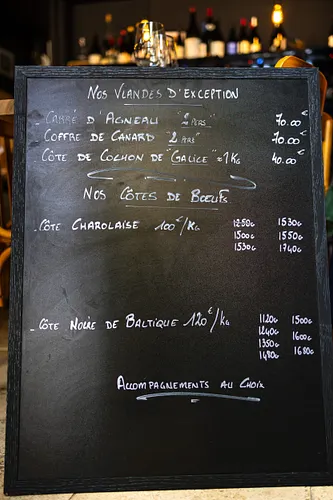 Nos Viandes d'Exception
- Carré d'Agneau "2 pers" 70.00€
- Coffre de Canard "2 pers" 70.00€
Côte de Cochon de "Galice" ≈ 1Kg 40.00€
Nos Côtes de Boeufs
- Côte Charolaise 100€/Kg 1250G 1530G
1500G 1550G
1530G 1740G
- Côte Noire de Baltique 120€/Kg 1120G 1500G
1240G 1600G
1350G 1680G
1480G
Accompagnements au Choix